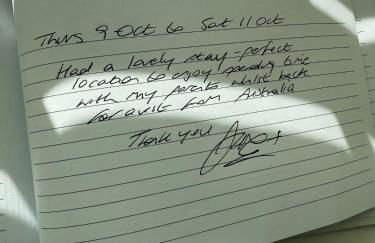 Thurs 9 Oct to Sat 11 Oct
Had a lovely stay - perfect
location to enjoy spending time
with my parents whilst back
for a visit from Australia
Thank you